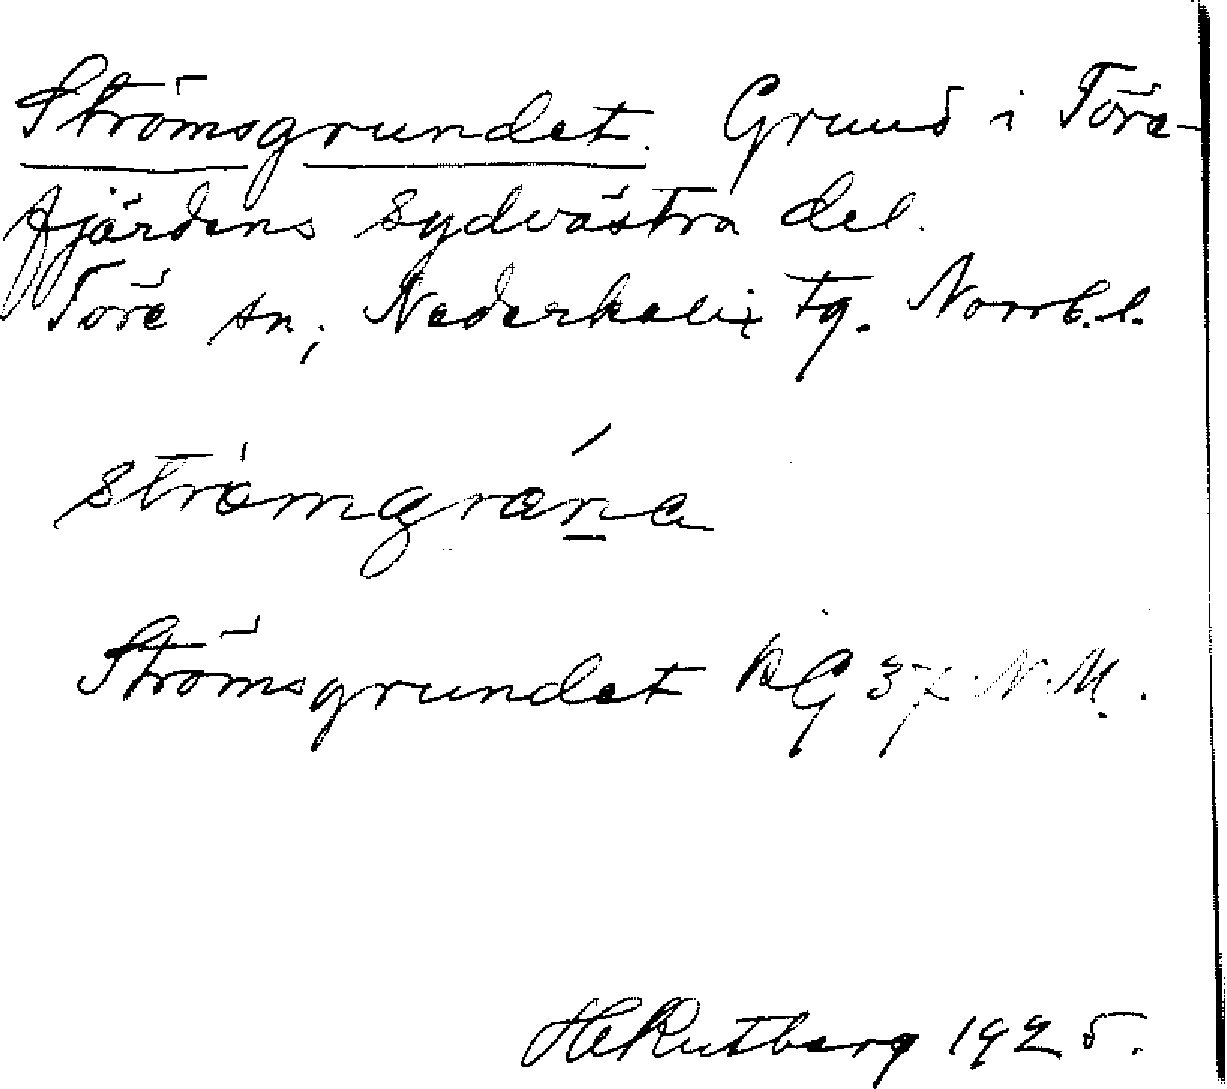 Strömsgrundet. Grund i Töre-
fjärdens sydvästra del.
Töre sn, Nederkalix tg. Norrb.l.
strömgrơna
Strömsgrundet KG 37 N.M.
H Rutberg 1925.